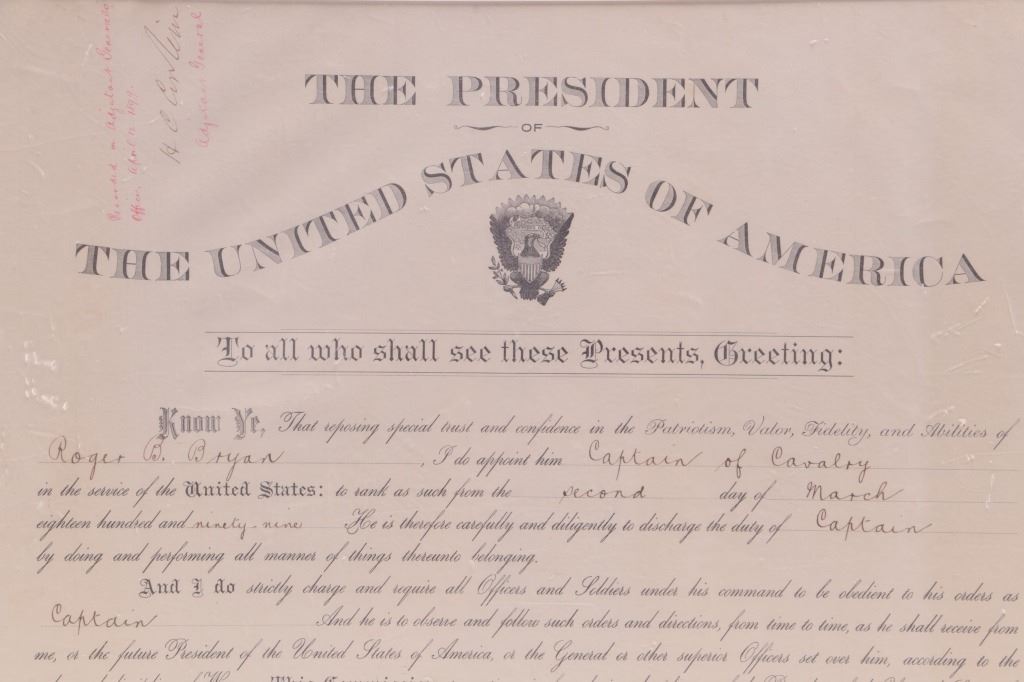 Recorded in Adjutant General's
Office, April 12 1899.
H C Corbin
Adjutant General
THE PRESIDENT
OF
THE UNITED STATES OF AMERICA
To all who shall see these Presents, Greeting:
Know Ye, That reposing special trust and confidence in the Patriotism, Valor, Fidelity, and Abilities of
Roger B. Bryan , I do appoint him Captain of Cavalry
in the service of the United States: to rank as such from the second day of March
eighteen hundred and ninety-nine . He is therefore carefully and diligently to discharge the duty of Captain
by doing and performing all manner of things thereunto belonging.
And I do strictly charge and require all Officers and Soldiers under his command to be obedient to his orders as
Captain And he is to observe and follow such orders and directions, from time to time, as he shall receive from
me, or the future President of the United States of America, or the General or other superior Officers set over him, according to the
This Commission